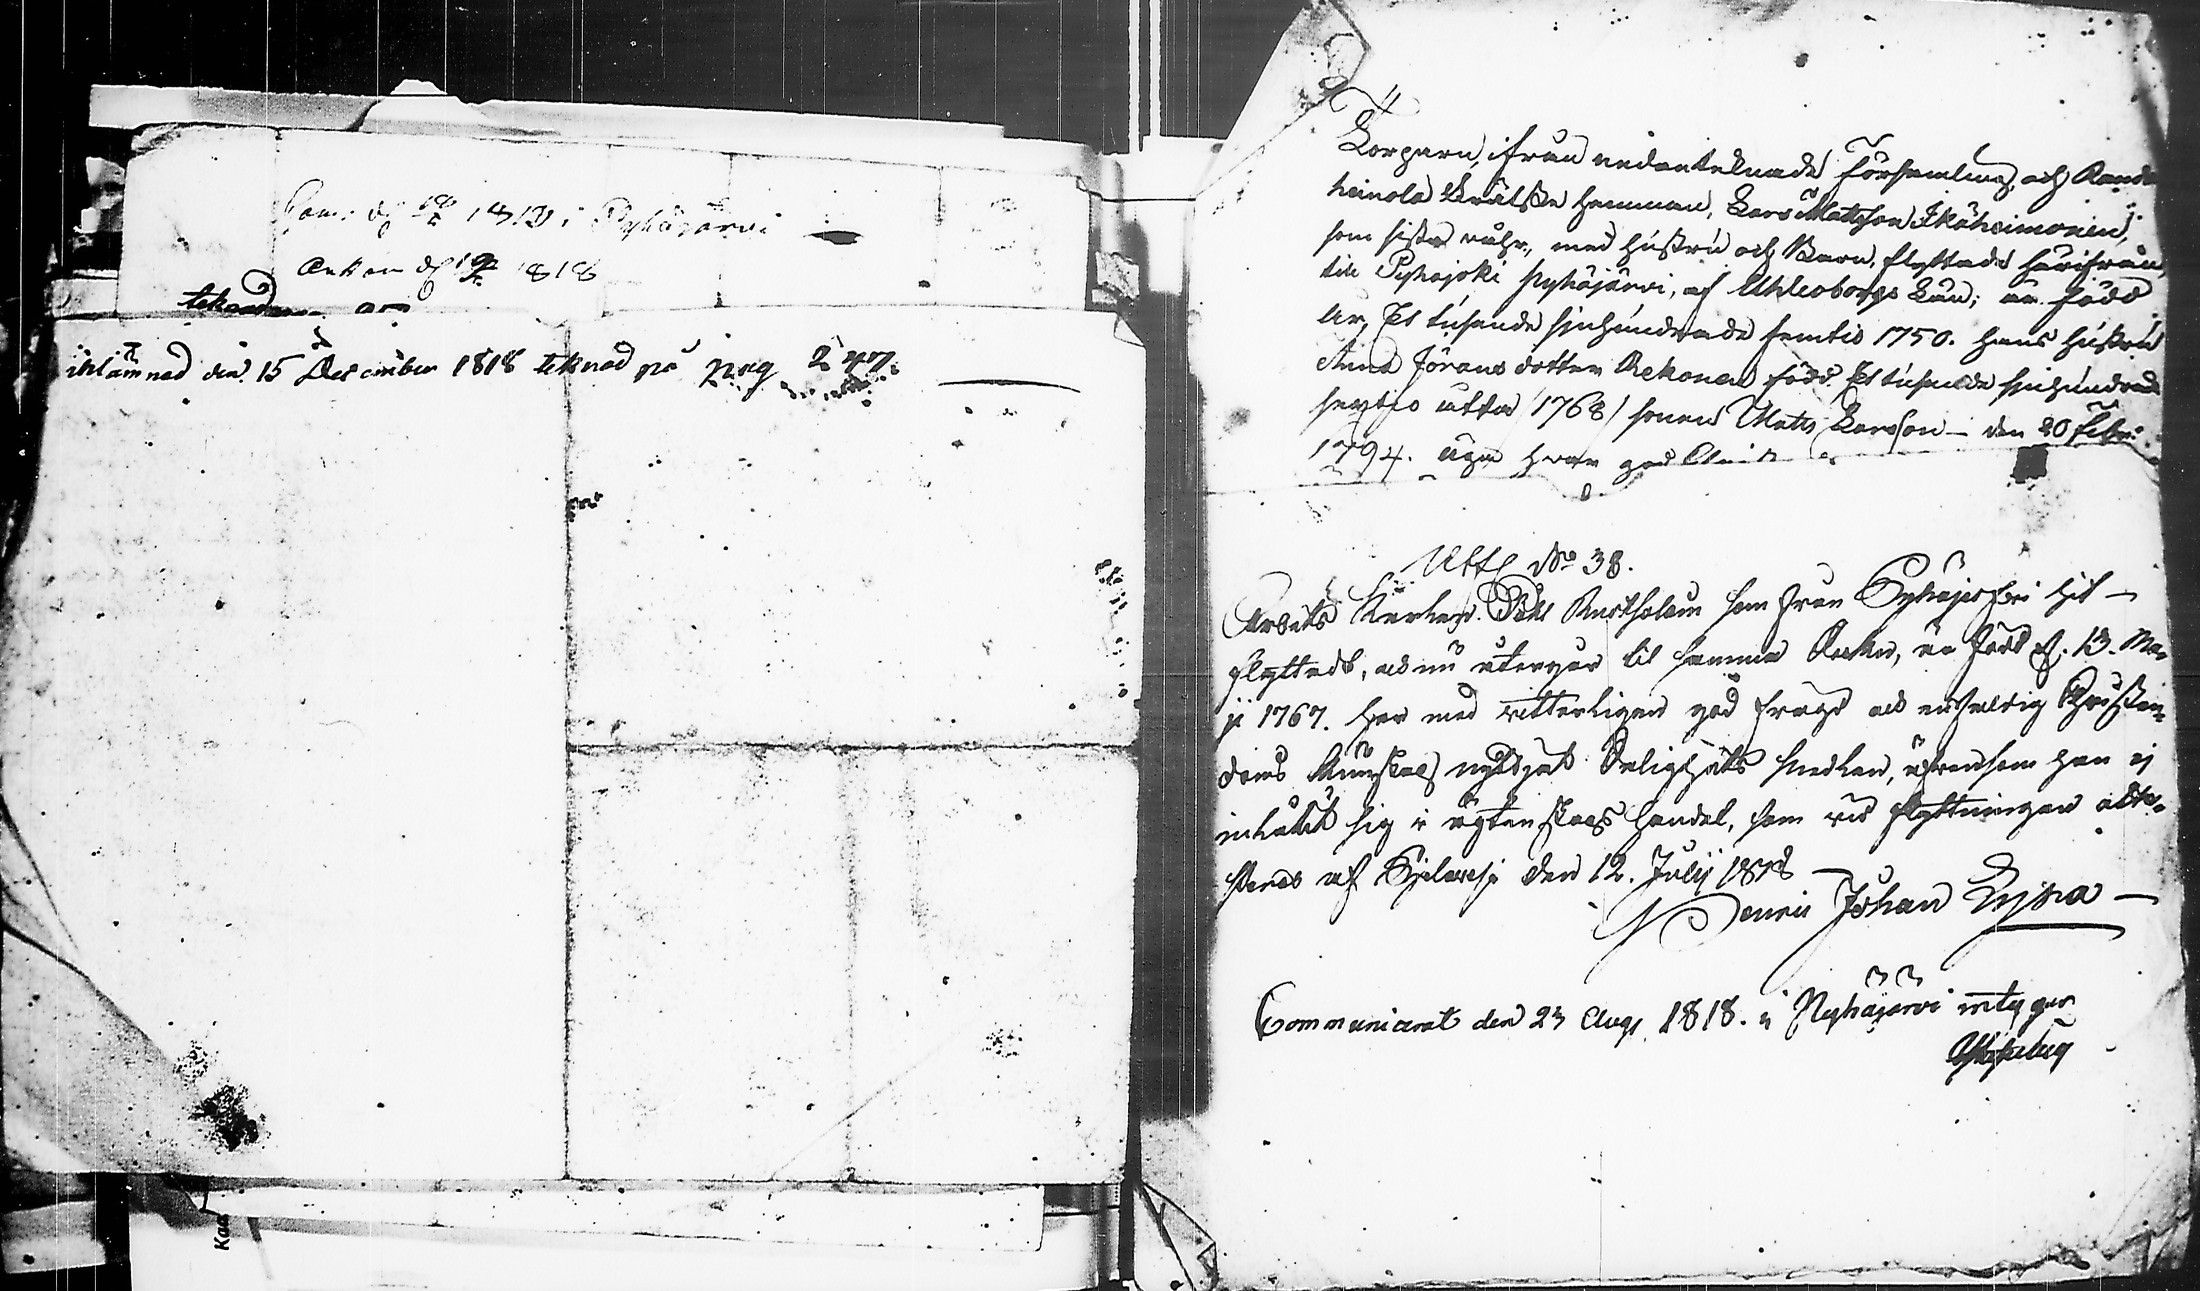 Com: d 1818 i Pyhäjärvi
1818
inlämnad den 15 December 1818 teknad på pag 247.
Torparen, ifrån nedanteknade Församling och
heinola Hemman, Lars Mattsson Ikäheimonen,
som sistl. med hustru och Barn, flyttade härifrån,
till Pyhäjoki Pyhäjärvi, af Uhleoborgs Län; är född
År Et tusende sjuhundrade femtio 1750. hans hustru
Anna Jörans dotter Rekonen född Et tusende sjuhundrade
sextio åtta (1768) sonen Matts Larsson – den 20 Febr:
1794. äga hvar god
Att N:o 38.
Arbets Karlen som från Pyhäjerfvi hit –
flyttadt, och nu återgår til samma Sockn, är född d. 13. Ma-
ji 1767. Har med god frägd och enfaldig Christen-
doms Kunskap nyttjat Salighets medlen, äfvensom han ej
inlåtit sig i ägtenskaps handel, som vid flyttningen atte-
steras af Pjelavesi den 12. Julij 1818 –
Henric Johan Lyra –
Communicerat den 23 Aug. 1818. i Pyhäjärvi intygar